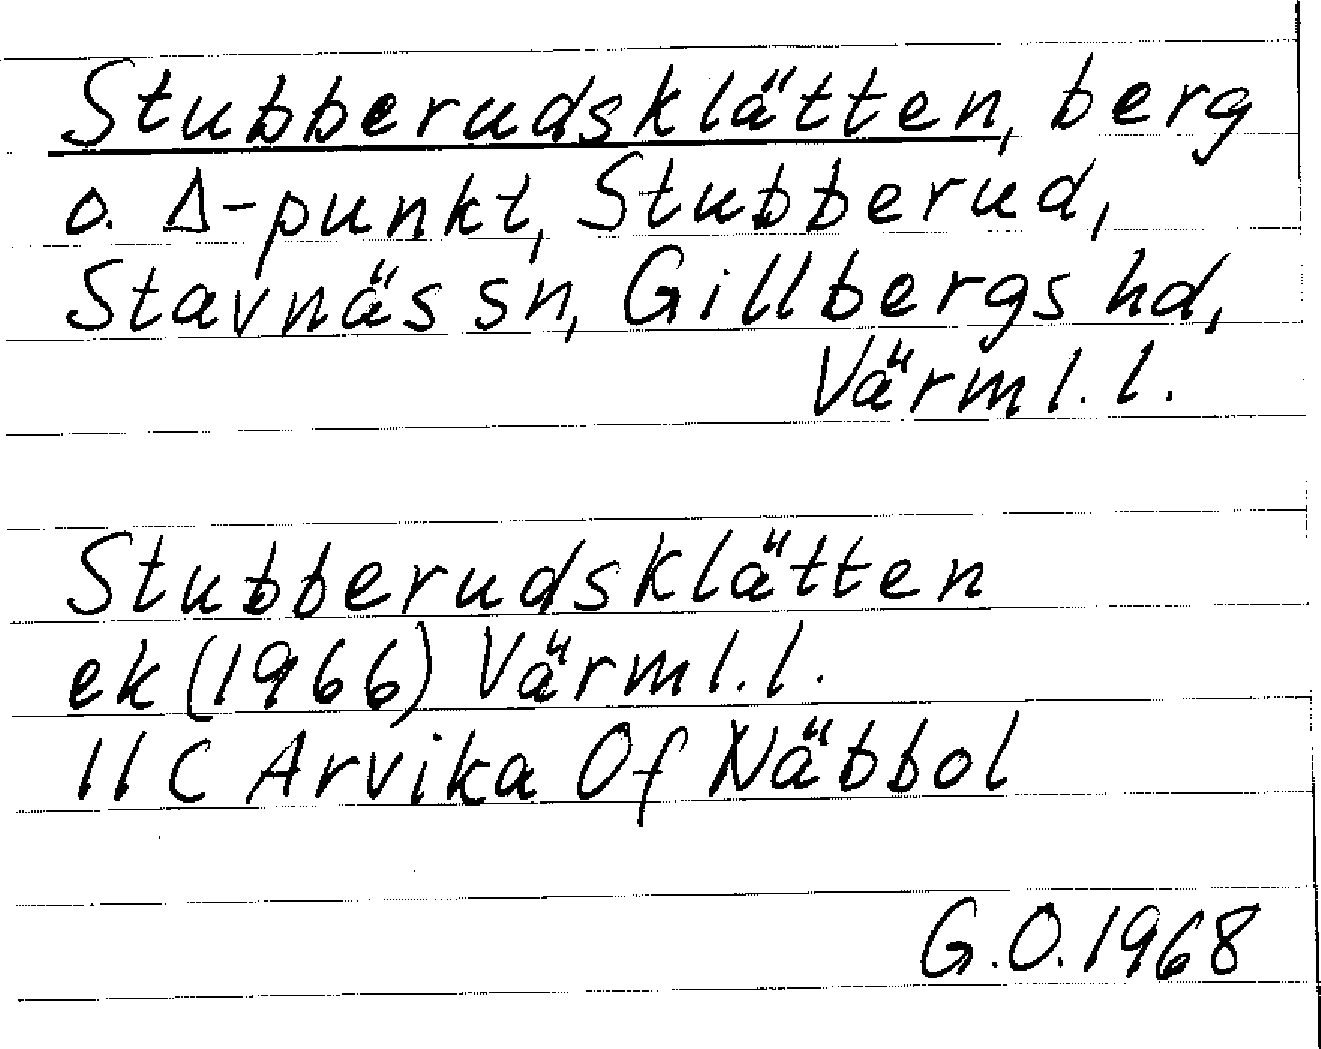 Stubberudsklätten, berg
o. Δ-punkt, Stubberud,
Stavnäs sn, Gillbergs hd,
Värml. l.
Stubberudsklätten
ek (1966) Värml. l.
11C Arvika 0f Näbbol
G.O. 1968